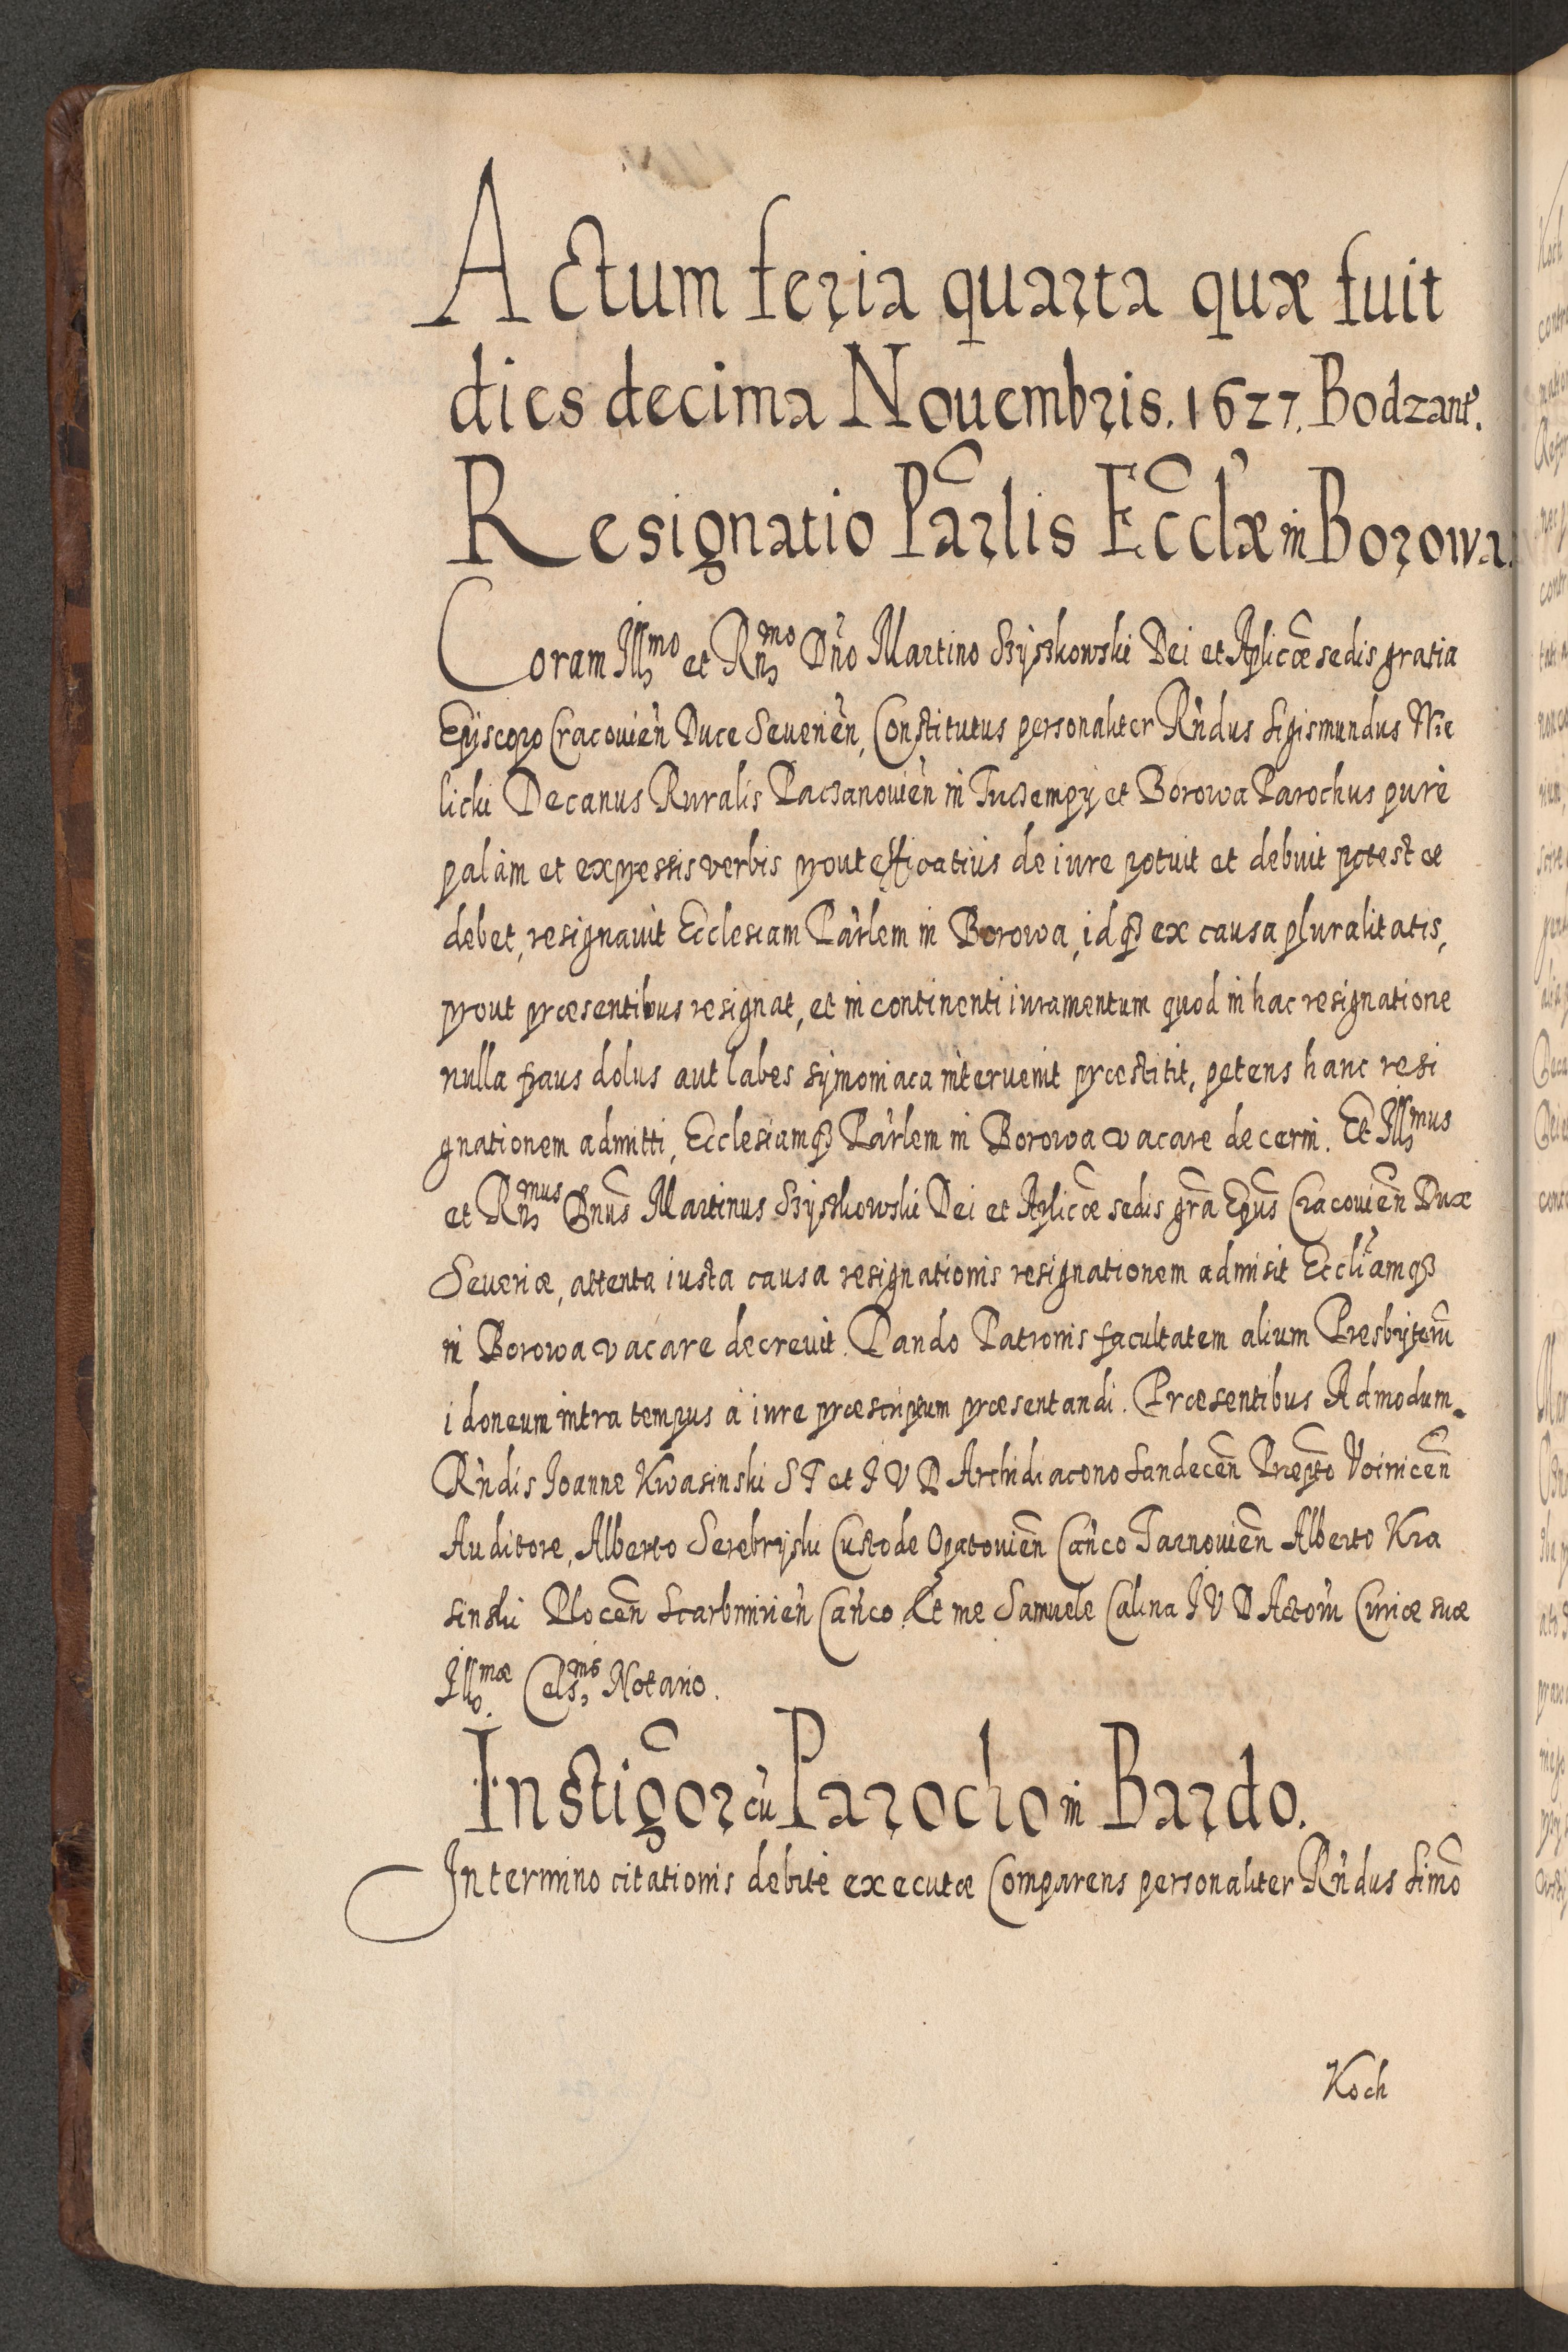 Actum feria quarta quæ fuit
dies decima Nouembris. 1627. Bodzant.
Resignatio Parlis Ecclæ in Borowa.
Coram Illmo et Rndmo Dno Martino Szyszkowski Dei et Aplicæ sedis gratia
Episcopo Cracouien Duce Seuerien, Constitutus personaliter Rndus Sigismundus Wie
licki Decanus Ruralis Paczanouien in Tuczempy et Borowa Parochus purè
palàm et expressis verbis prout efficatius de iure potuit et debuit potest et
debet, resignauit Ecclesiam Parlem in Borowa, idqз ex causa pluralitatis,
prout præsentibus resignat, et in continenti iuramentum quod in hac resignatione
nulla fraus dolus aut labes symoniaca interuenit præstitit, petens hanc resi
gnationem admitti, Ecclesiamqз Parlem in Borowa vacare decerni. Et Illmus
et Rndmus Dnus Martinus Szyszkowski Dei et Aplicæ sedis gra Epus Cracouien Dux
Seueriæ, attenta iusta causa resignationis resignationem admisit Eccliamqз
in Borowa vacare decreuit. Dando Patronis facultatem alium Presbyterũ
idoneum intra tempus à iure præscriptum præsentandi. Præsentibus Admodum
Rndis Ioanne Kwasinski S T et I V D Archidiacono Sandecen Præpto Voinicen
Auditore, Alberto Serebryski Custode Opatouien Canco Tarnouien Alberto Kra
sinski Plocen Scarbimirien Canco Et me Samuele Calina I V D Actorũ Curiæ suæ
Illmæ Celsnis Notario.
Instigor cũ Parocho in Bardo.
In termino citationis debitè executæ Comparens personaliter Rndus Simõ
Koch